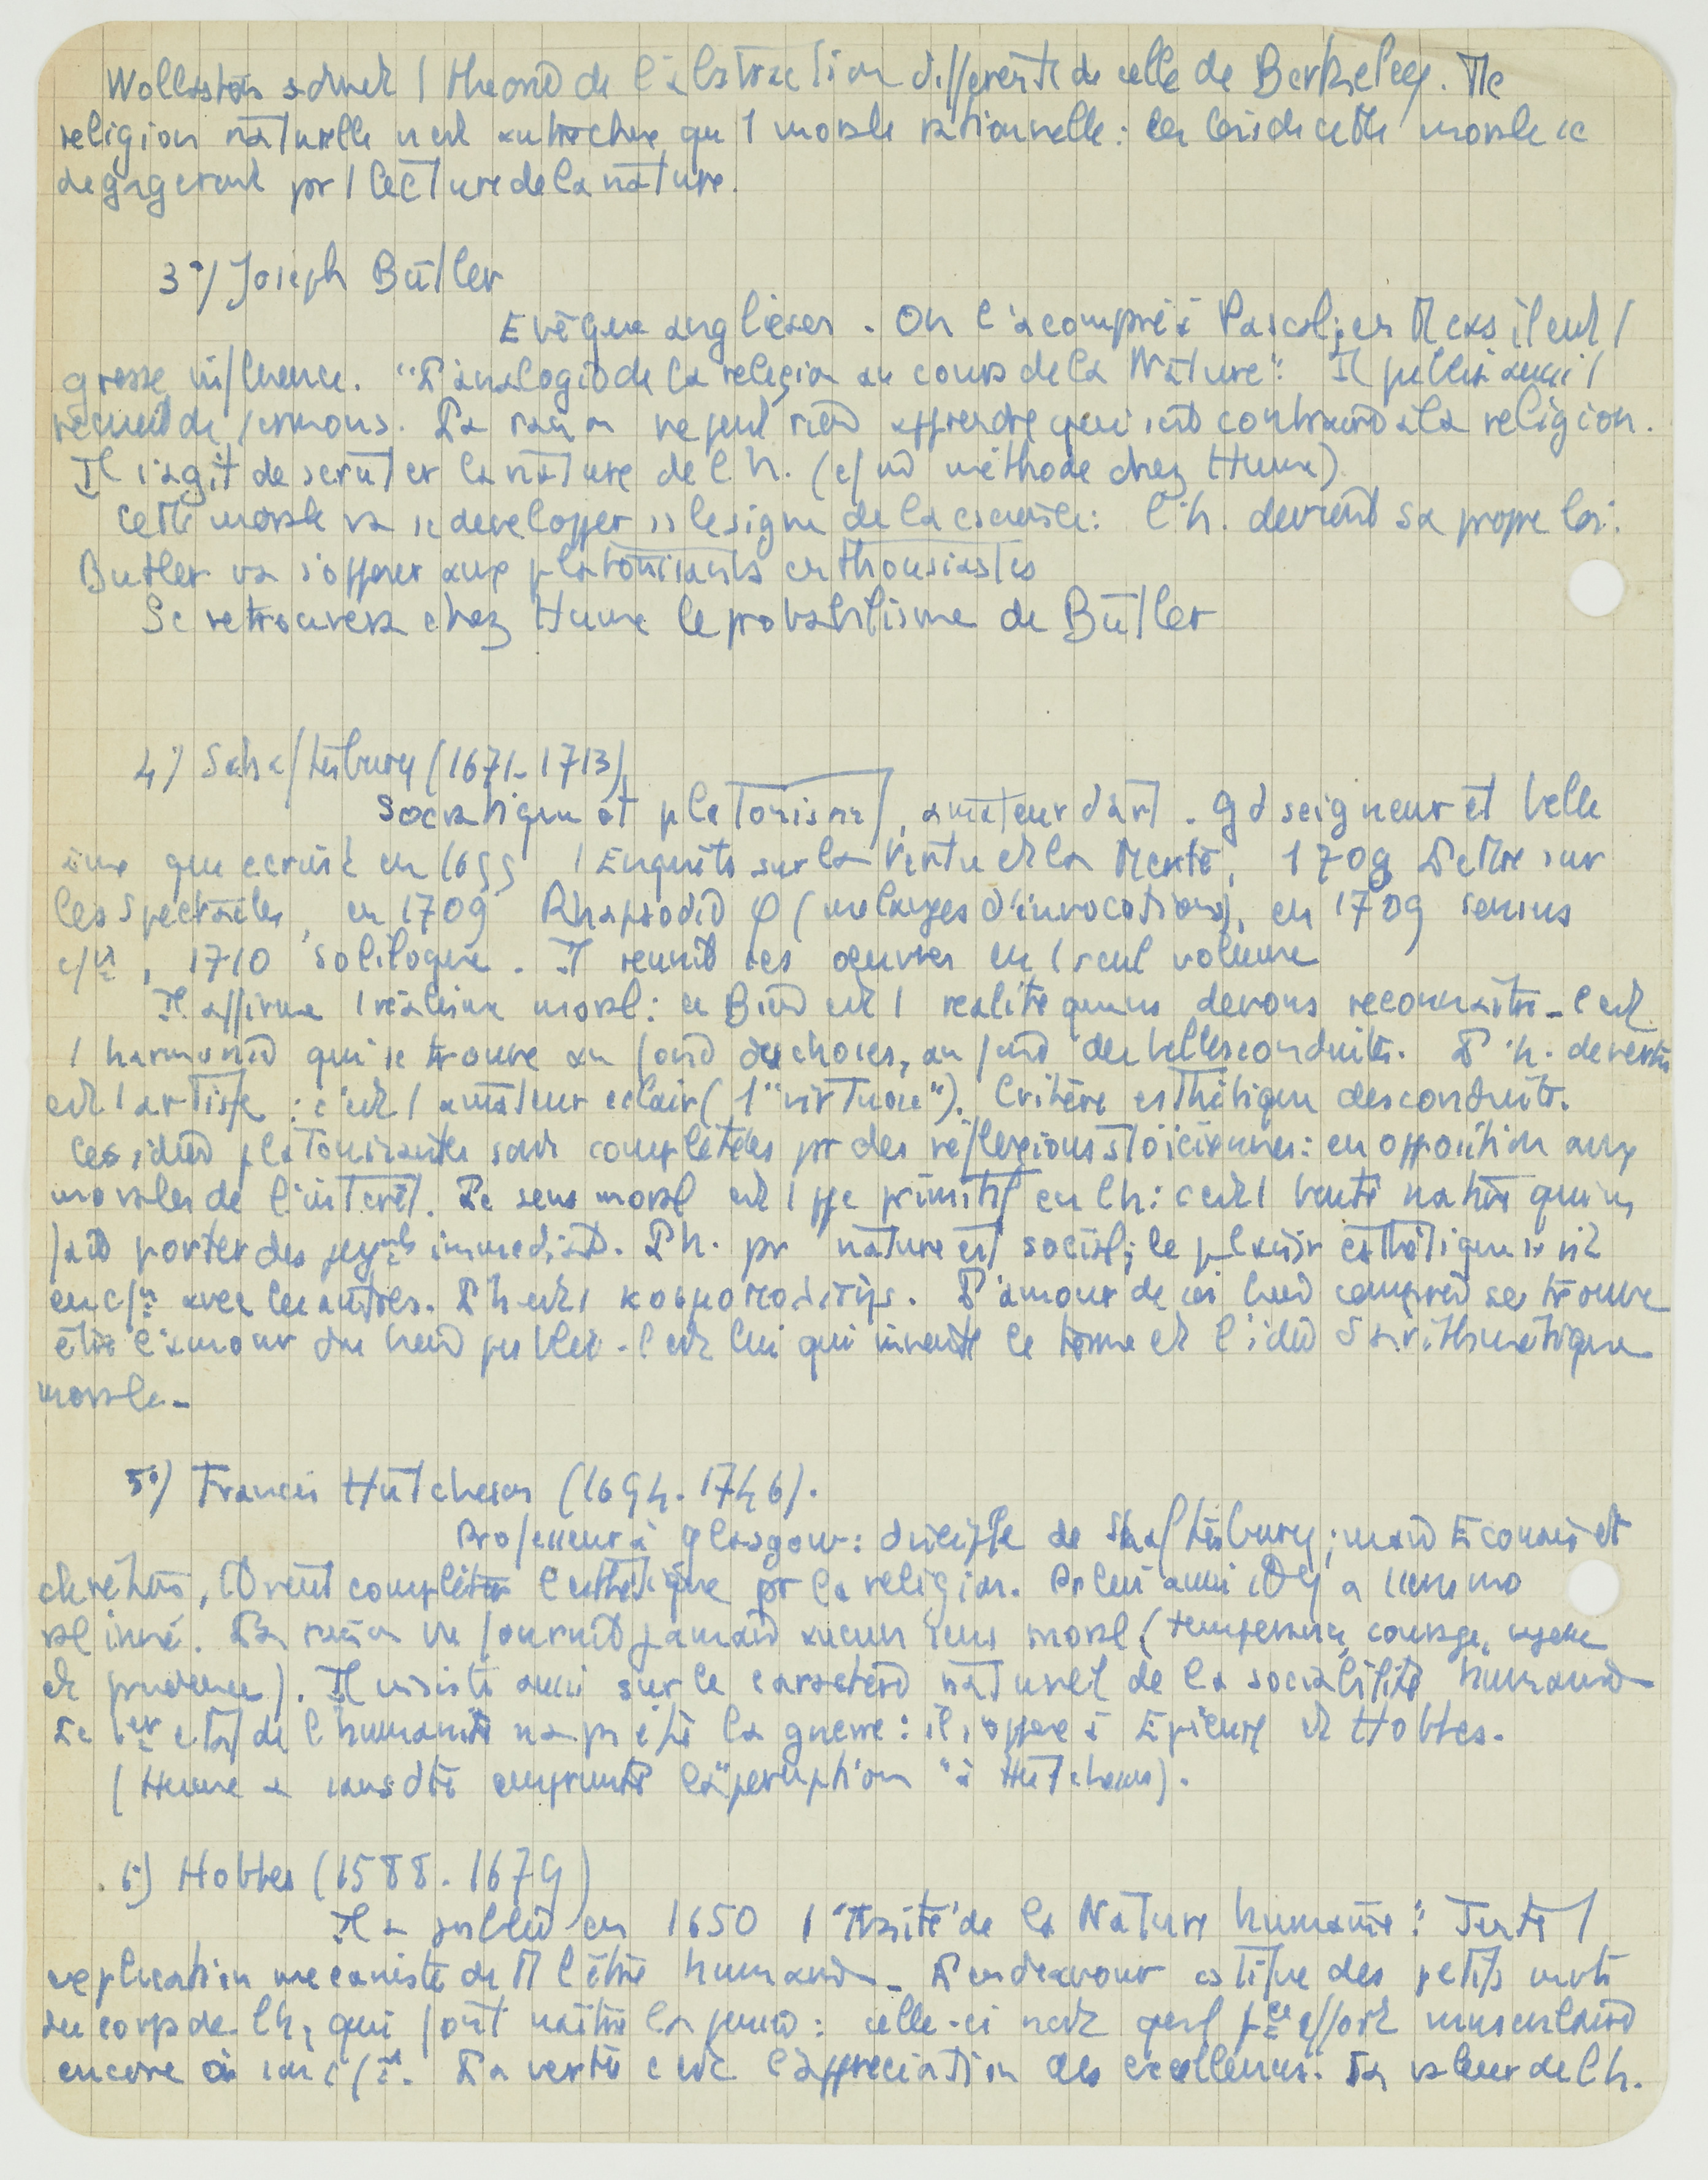 Wollaston admet 1 theorie de l'abstraction differente de celle de Berkeley. Tte
religion naturelle n'est autre chose qu 1 morale rationnelle: les lois de cette morale se
degageront pr 1 lecture de la nature.
3°/ Joseph Butler
Evêque anglican. On l'a comparé à Pascal; en tt cas il eut 1
grosse influence. "L'analogie de la religion au cours de la Nature". Il publia aussi 1
recueil de sermons. La raison ne peut rien apprendre qui soit contraire à la religion.
Il s'agit de scruter la nature de l'h. (c/ la méthode chez Hume)
Cette morale va se developper ss le signe de la : l'h. devient sa propre loi.
Butler va s'opposer aux platonisants enthousiastes
Se retrouvera chez Hume le probabilisme de Butler
4°/ Schaftesbury (1671-1713)
Socratique et platonisant, amateur d'art. Gd seigneur et belle
âme qui ecrivit en 1699 1 Enquête sur la Vertu et le Merite, 1709 Lettre sur
les spectacles, en 1709 Rhapsodie φ (melanges d'invocations), en 1709 sensus
c/n, 1710 Soliloque. Il reunit ses oeuvres en 1 seul volume
Il affirme 1 realisme moral: le Bien est 1 realite que ns devons reconnaitre - c'est
1 harmonie qui se trouve au fond des choses, au fond des belles conduites. L'h. de vertu
est 1 artiste : c'est 1 amateur eclairé (1 "virtuose"). Critère esthétique des conduites.
Ces idees platonisantes sont completées pr des réflexions stoïciennes: en opposition aux
morales de l'intérêt. Le sens moral est 1 ppe primitif en l'h: c'est 1 bonté native qui ns
fait porter des jugmts immediats. L'h. pr nature est social; le plaisir esthétique se vit
en c/n avec les autres. L'h est 1 κοσμοπολίτης. L'amour de soi bien compris se trouve
être l'amour du bien public. C'est lui qui invente le terme et l'idée d'arithmetique
morale.
5°) Francis Hutcheson (1694-1746).
Professeur à Glasgow: disciple de Shaftesbury; mais Ecossais et
chretien, il vent completer l'esthetique pr la religion. Pr lui aussi il y a 1 sens mo
ral inné. La raison ne fournit jamais aucun sens moral (temperance, courage, sagesse
et prudence). Il insiste aussi sur le caractère naturel de la sociabilité humaine
Le 1er etat de l'humanité n'a ps été la guerre: il s'oppose à Epicure et Hobbes.
(Hume a sans dte emprunté la "perception" à Hutcheson).
6°) Hobbes (1588-1679)
Il a publié en 1650 1 "Traité de la Nature humaine": Tente 1
explication mecaniste de tt l'être humain. L'endeavour est des petits mvts
du corps de l'h, qui font naître la pensée: celle-ci n'est qu'1 effort musculaire
encore . La vertu c'est l'appreciation des excellences. La valeur de l'h.